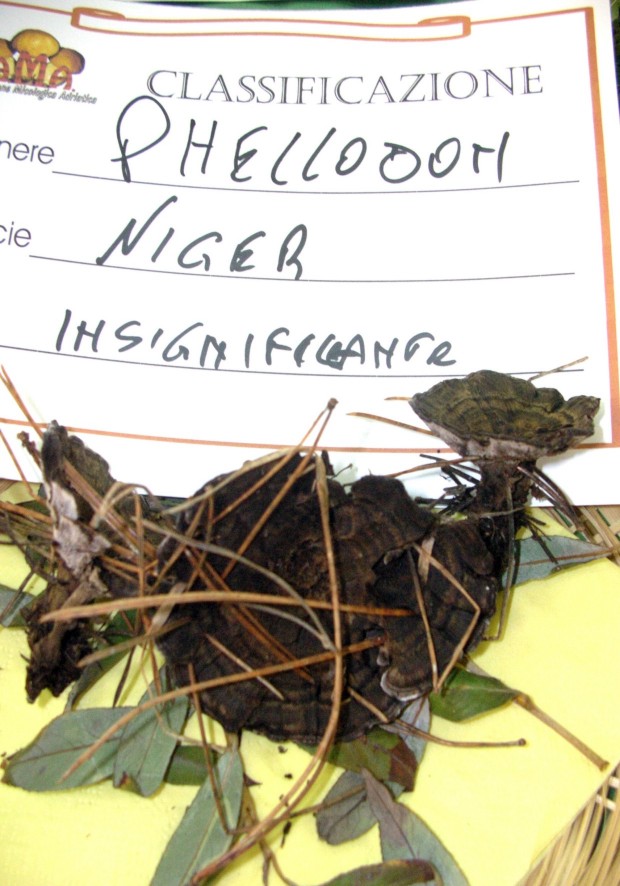 aMA
Micologica Adriatica
CLASSIFICAZIONE
nere PHELLODON
cie NIGER
INSIGNIFICANTE